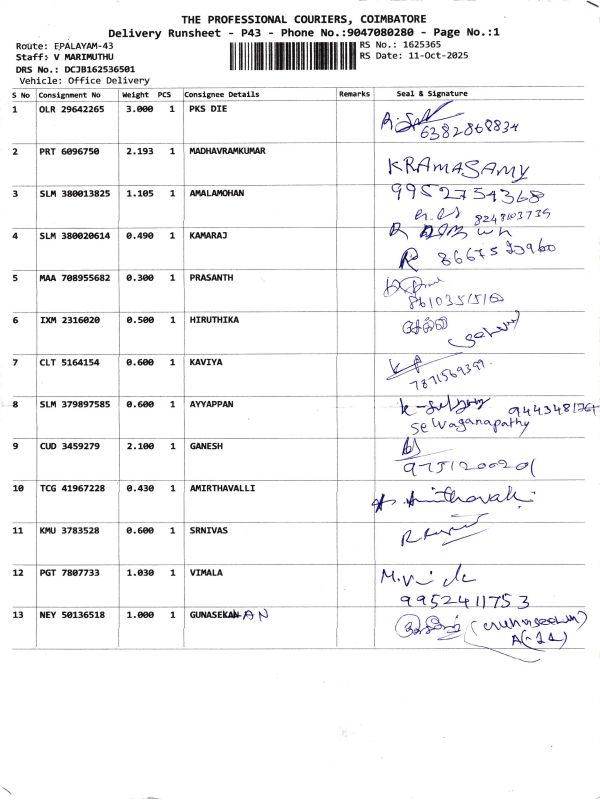 THE PROFESSIONAL COURIERS, COIMBATORE
Delivery Runsheet - P43 - Phone No.:9047080280 - Page No.:1
Route: EPALAYAM-43
Staff: V MARIMUTHU
DRS No.: DCJB162536501
Vehicle: Office Delivery
RS No.: 1625365
RS Date: 11-Oct-2025
S No Consignment No Weight PCS Consignee Details Remarks Seal & Signature
1 OLR 29642265 3.000 1 PKS DIE
6382868834
2 PRT 6096750 2.193 1 MADHAVRAMKUMAR
KRAMASAMY
3 SLM 380013825 1.105 1 AMALAMOHAN 9952754368
8248103739
4 SLM 380020614 0.490 1 KAMARAJ
5 MAA 708955682 0.300 1 PRASANTH
6 IXM 2316020 0.500 1 HIRUTHIKA
7 CLT 5164154 0.600 1 KAVIYA
7871569399
8 SLM 379897585 0.600 1 AYYAPPAN
Selvaganapathy
9 CUD 3459279 2.100 1 GANESH
9751200201
10 TCG 41967228 0.430 1 AMIRTHAVALLI
11 KMU 3783528 0.600 1 SRNIVAS
12 PGT 7807733 1.030 1 VIMALA
9952411753
13 NEY 50136518 1.000 1 GUNASEKAN AN